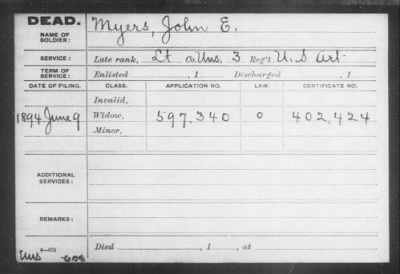 DEAD.
NAME OF SOLDIER: Myers, John E.
SERVICE: Late rank, Lt Co. Uns, 3 Reg't U.S Art
TERM OF SERVICE: Enlisted , 1 Discharged , 1
DATE OF FILING. CLASS. APPLICATION NO. LAW. CERTIFICATE NO.
Invalid,
1894 June 9 Widow, 597,340 0 402,424
Minor,
ADDITIONAL SERVICES:
REMARKS:
Died , 1 , at
Uns